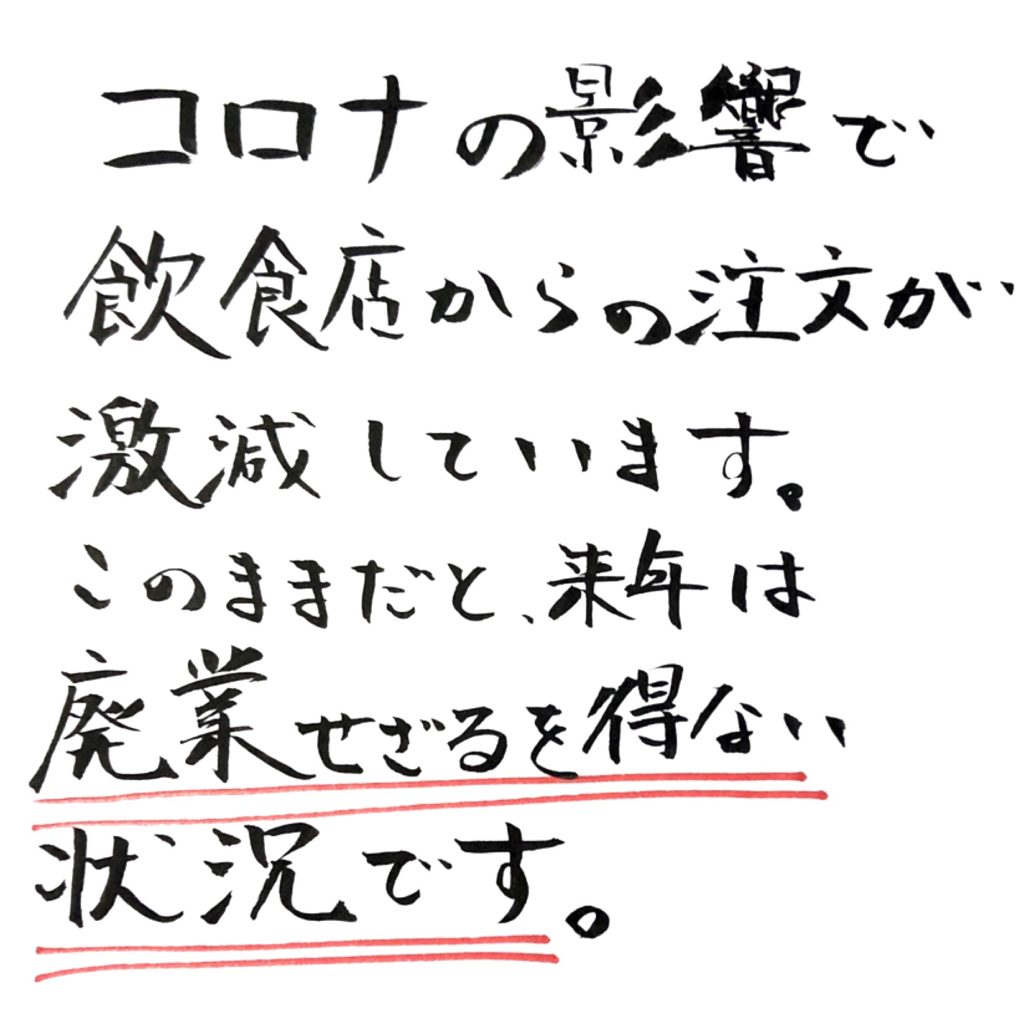 コロナの影響で
飲食店からの注文が
激減しています。
このままだと、来年は
廃業せざるを得ない
状況です。